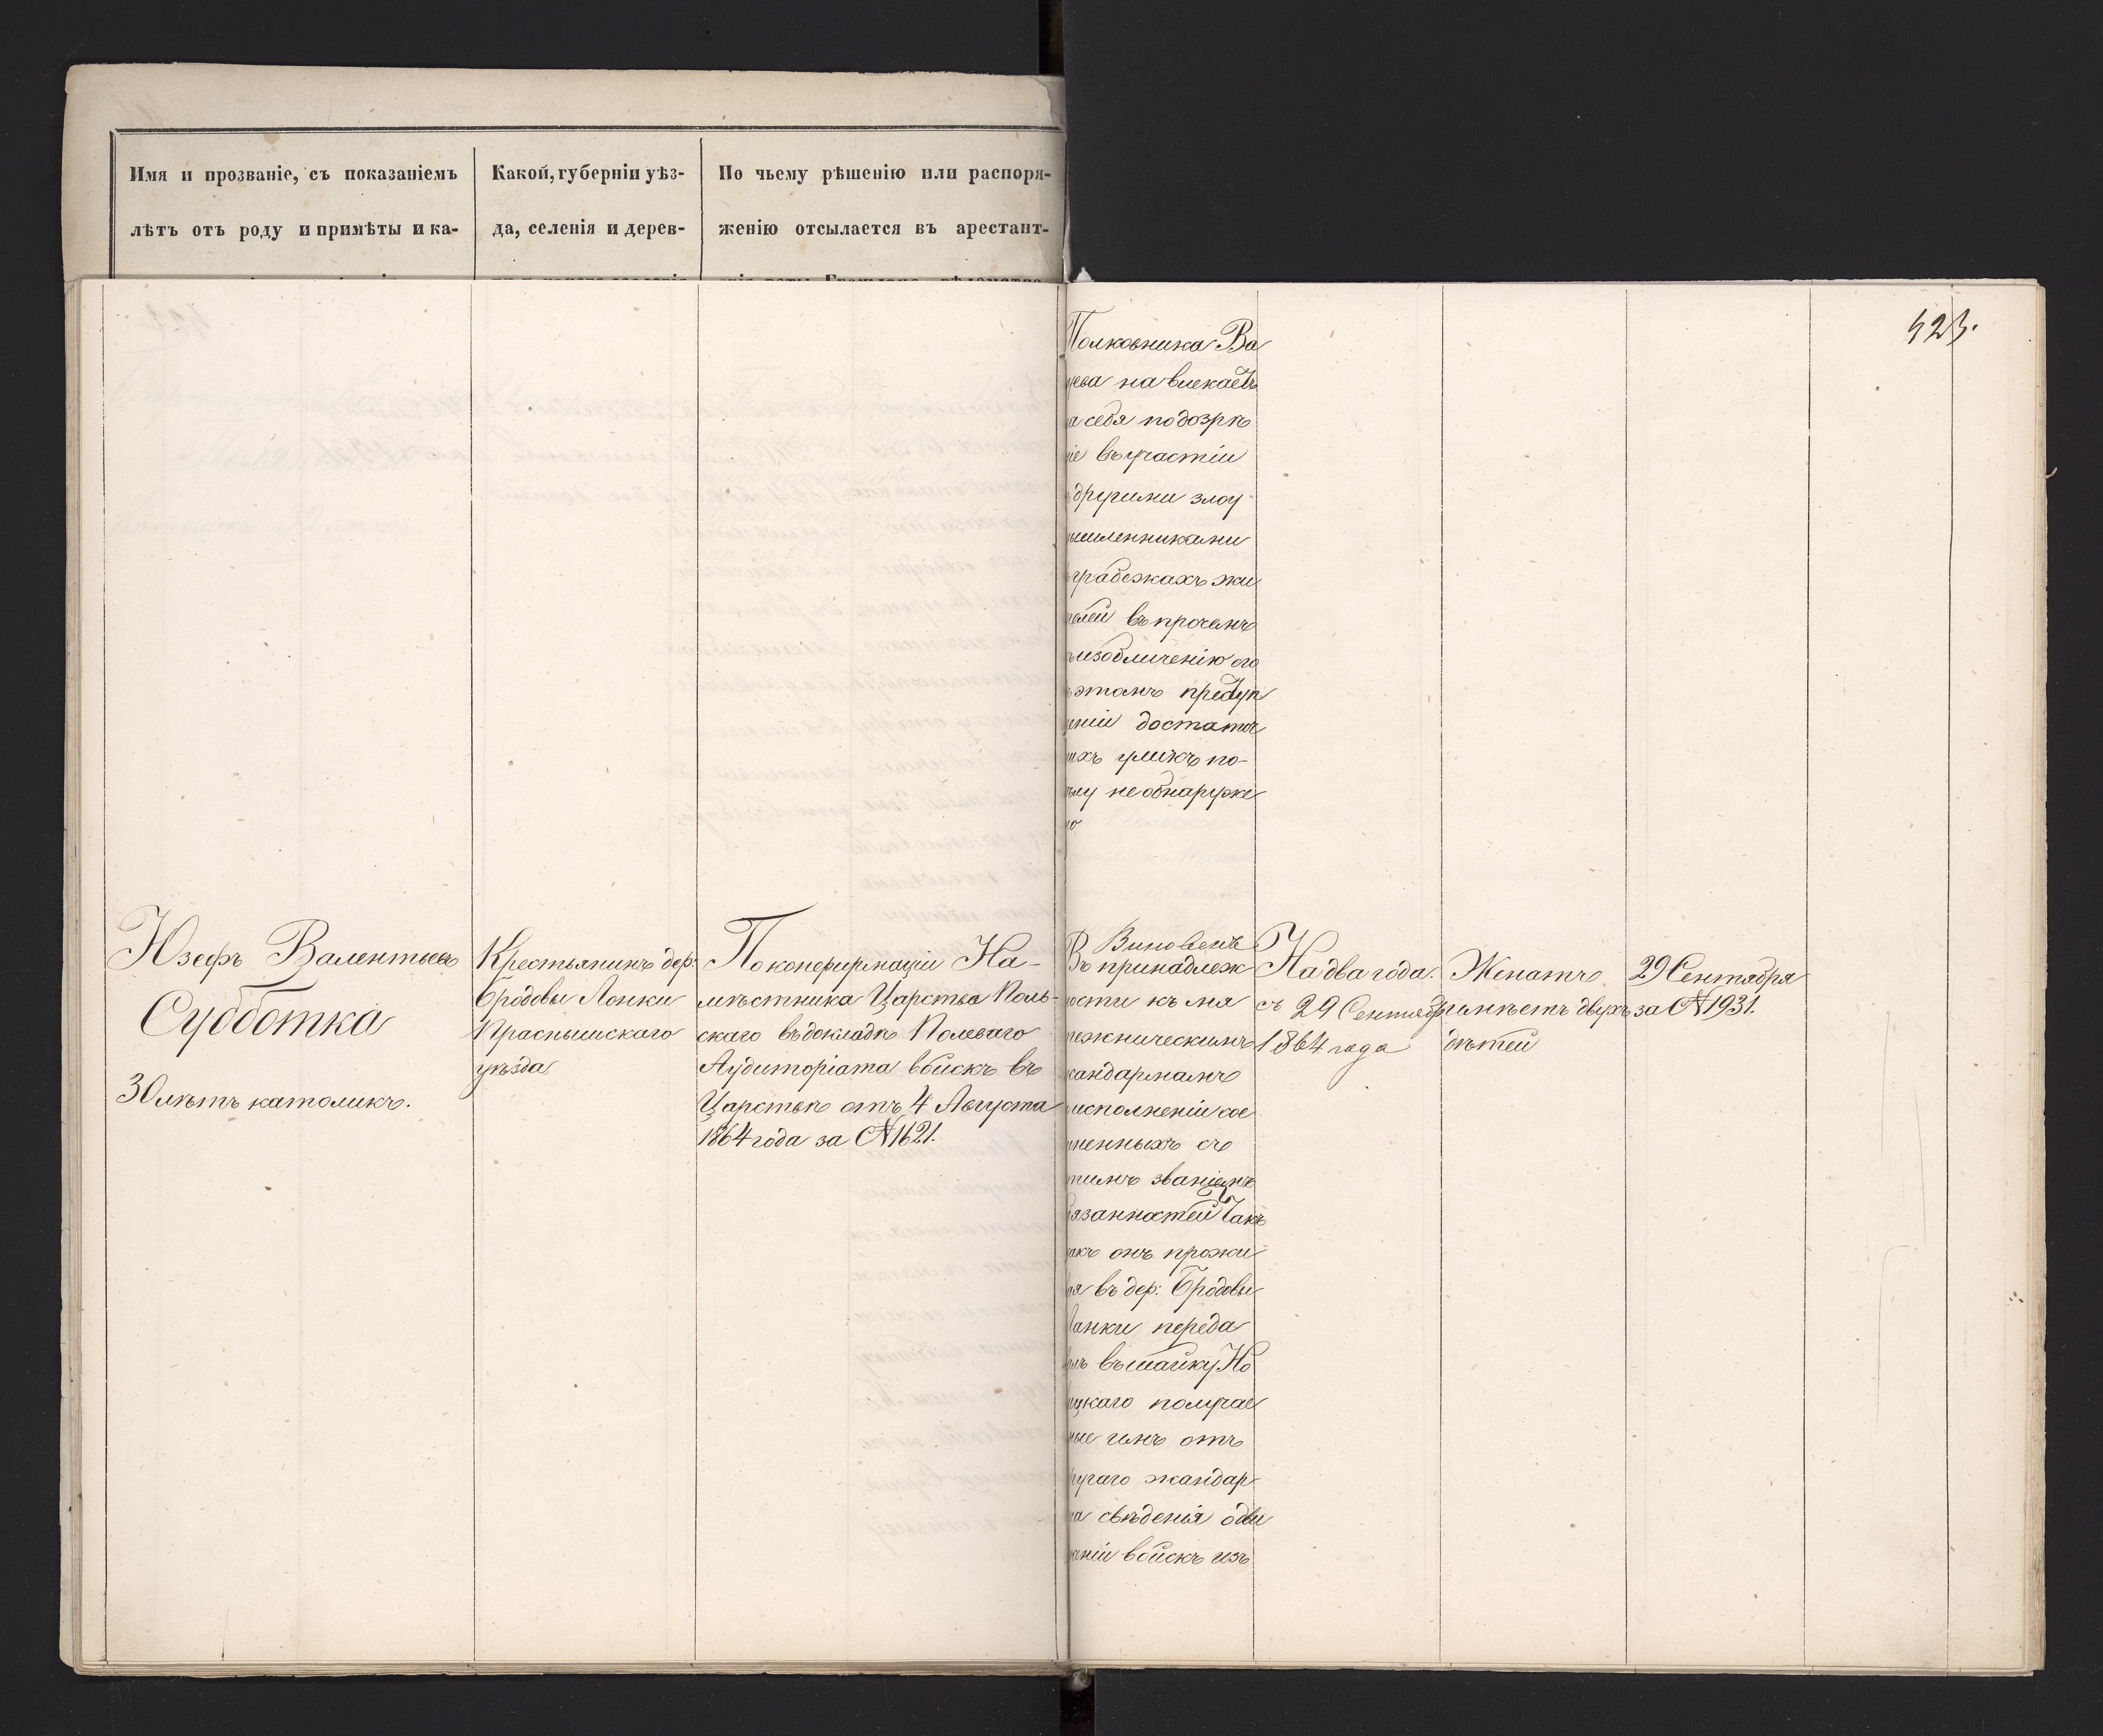 Имя и прозваніе, съ показаніемъ
лѣтъ отъ роду и примѣты и ка-
Какой, губерніи уѣз-
да, селенія и дерев-
По чьему рѣшенію или распоря-
женію отсылается въ арестант-
423.
Полковника Ва
на влекаетъ
а себя подозрѣ
іе въ участіи
другими злоу
мышленниками
грабежахъ жи
телей въ прочемъ
изобличенію его
этомъ преступ
леніи достаточ
ыхъ уликъ по
му не обнаруже
но
Юзефъ Валентьевъ
Субботка
30 лѣтъ католикъ.
Крестьянинъ дер:
Бродовы Лонки
Праснышскаго
уѣзда
По конфирмаціи На-
мѣстника Царства Поль-
скаго въ докладѣ Полеваго
Аудиторіата войскъ въ
Царствѣ отъ 4 Августа
1864 года за № 1621.
Виновенъ
Въ принадлеж
ности къ мя
тежническимъ
жандармамъ
исполненіи сое
диненныхъ съ
тимъ званіемъ
бязанностей такъ
акъ онъ прожи
вая въ дер: Бродовы
Ланки переда
лъ въ шайку Но
ицкаго получае
мые имъ отъ
другаго жандар
ма свѣденія о дви
женіи войскъ изъ
На два года.
съ 29 Сентября
1864 года
Женатъ
имѣетъ двухъ
дѣтей
29 Сентября
за № 1931.